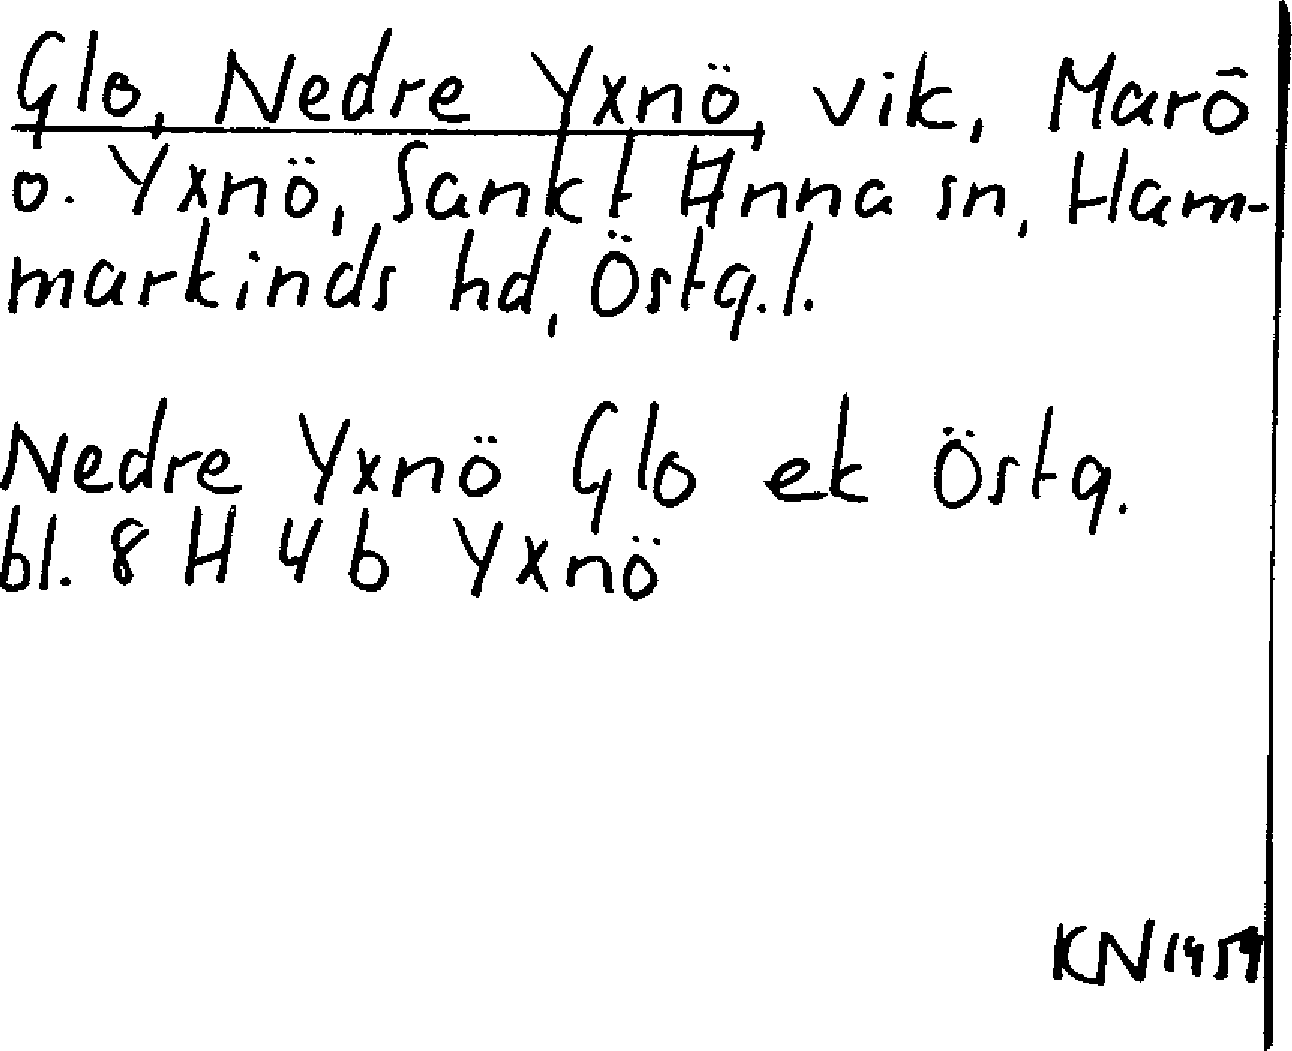 Glo, Nedre Yxnö, vik, Marö
o. Yxnö, Sankt Anna sn, Ham-
markinds hd, Östg.l.
Nedre Yxnö Glo ek Östg.
bl. 8 H 4 b Yxnö
KN